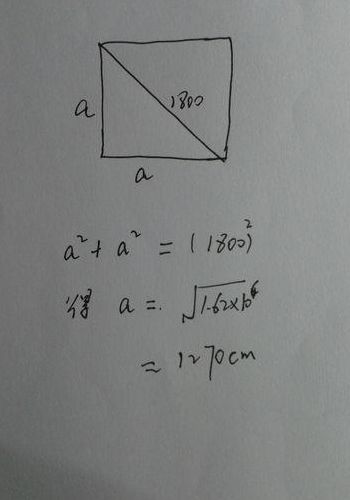 1800
a
a
a² + a² = (1800)²
得 a = √1.62×10⁶
= 1270cm